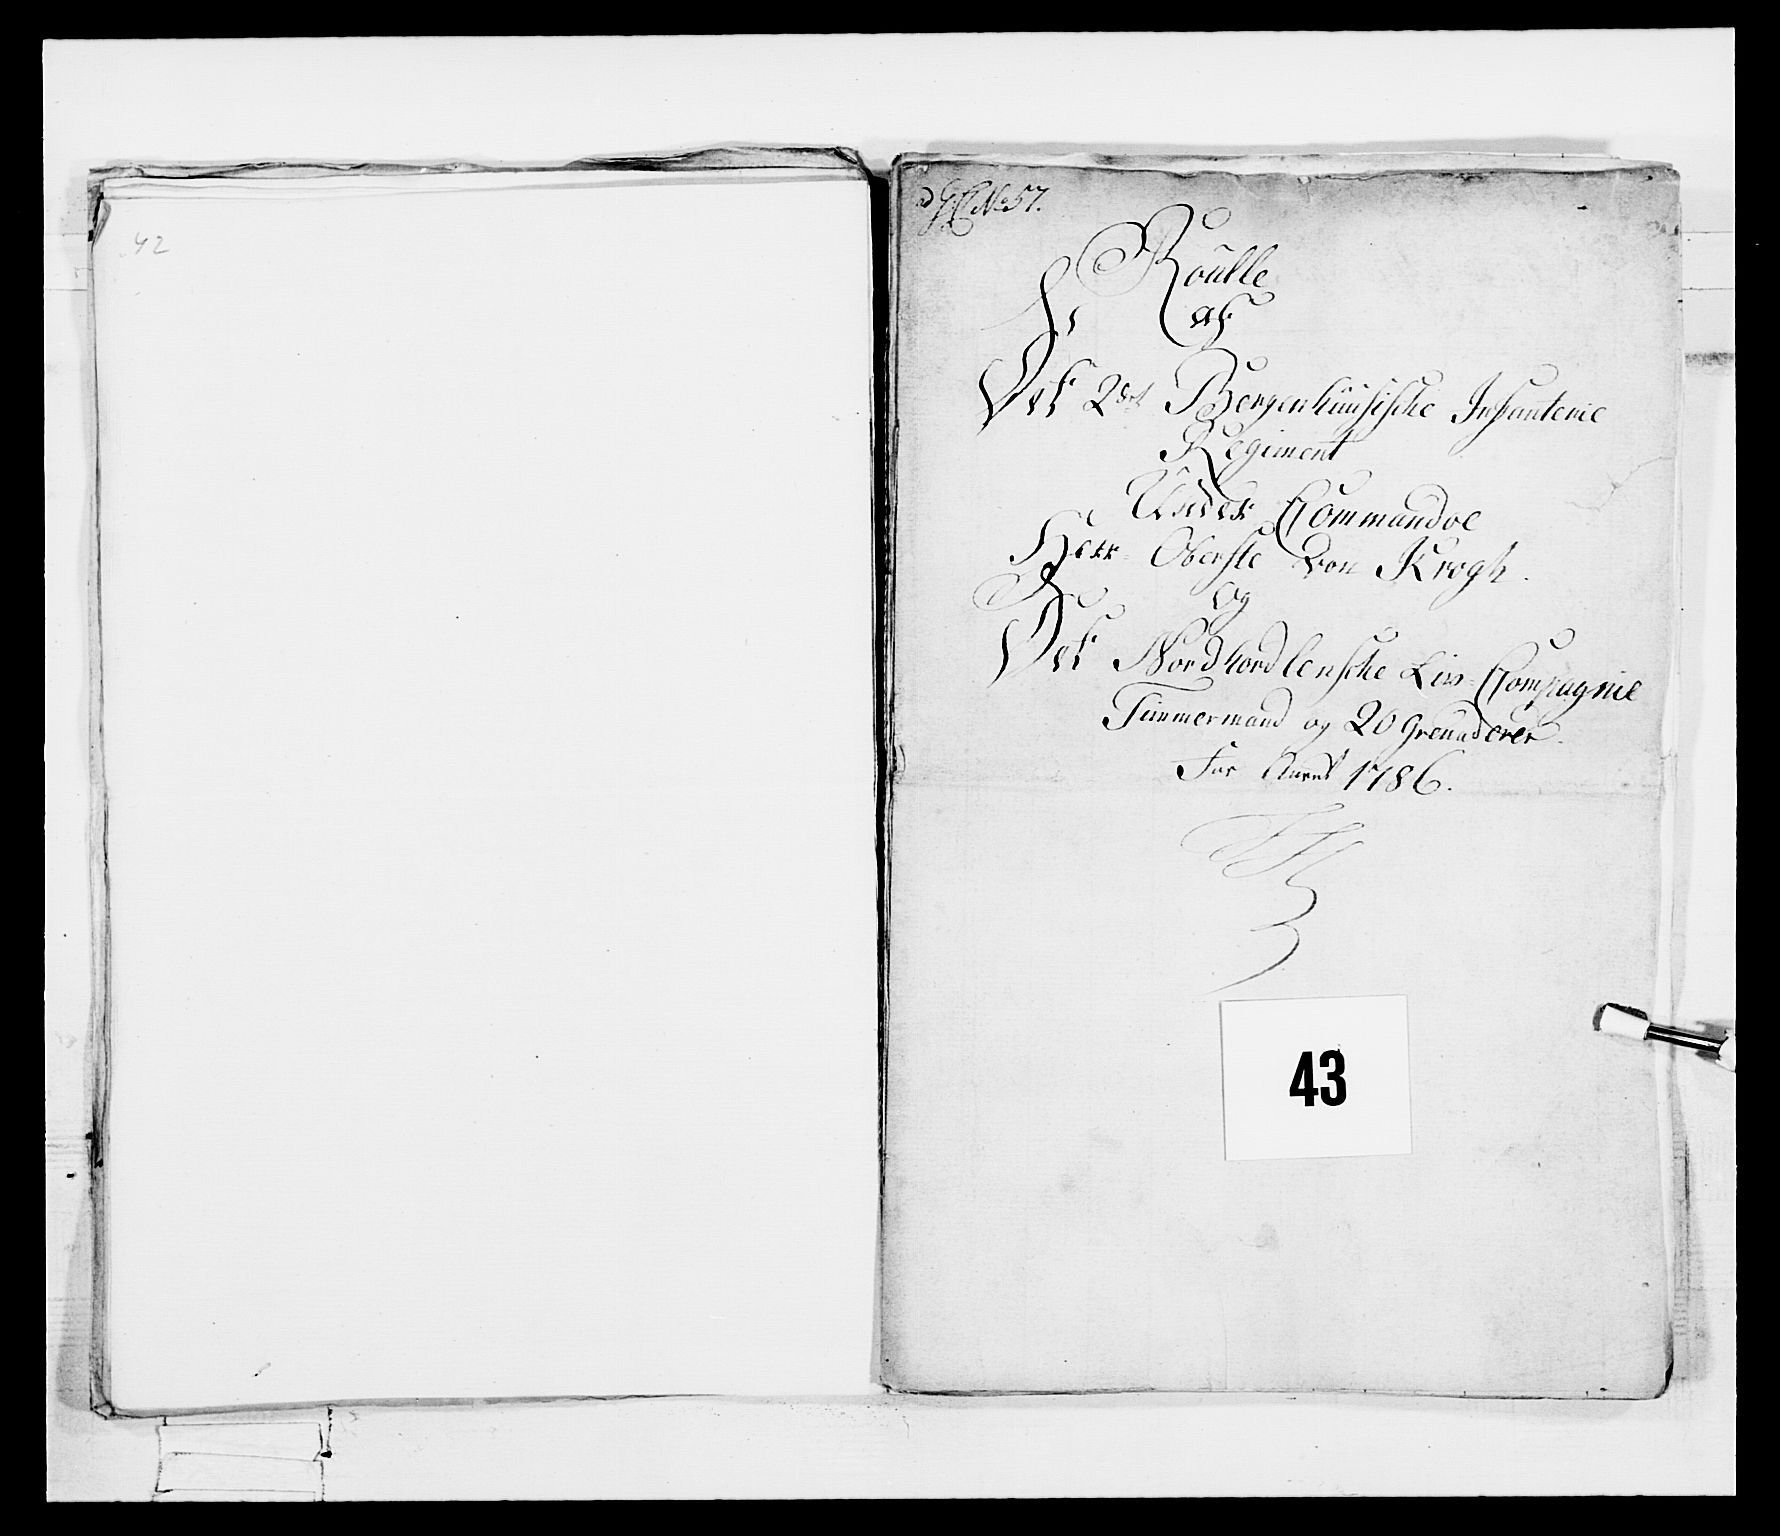 42
No 57.
Roulle
af
Det 2det Bergenhuusische Infanterie
Regiment
Under Commandoe
Herr Oberste von Krogh.
og
Det Nordhordlensche Liv-Compagnie
Timmermænd og 20 Grenaderer.
For Aaret 1786.
43